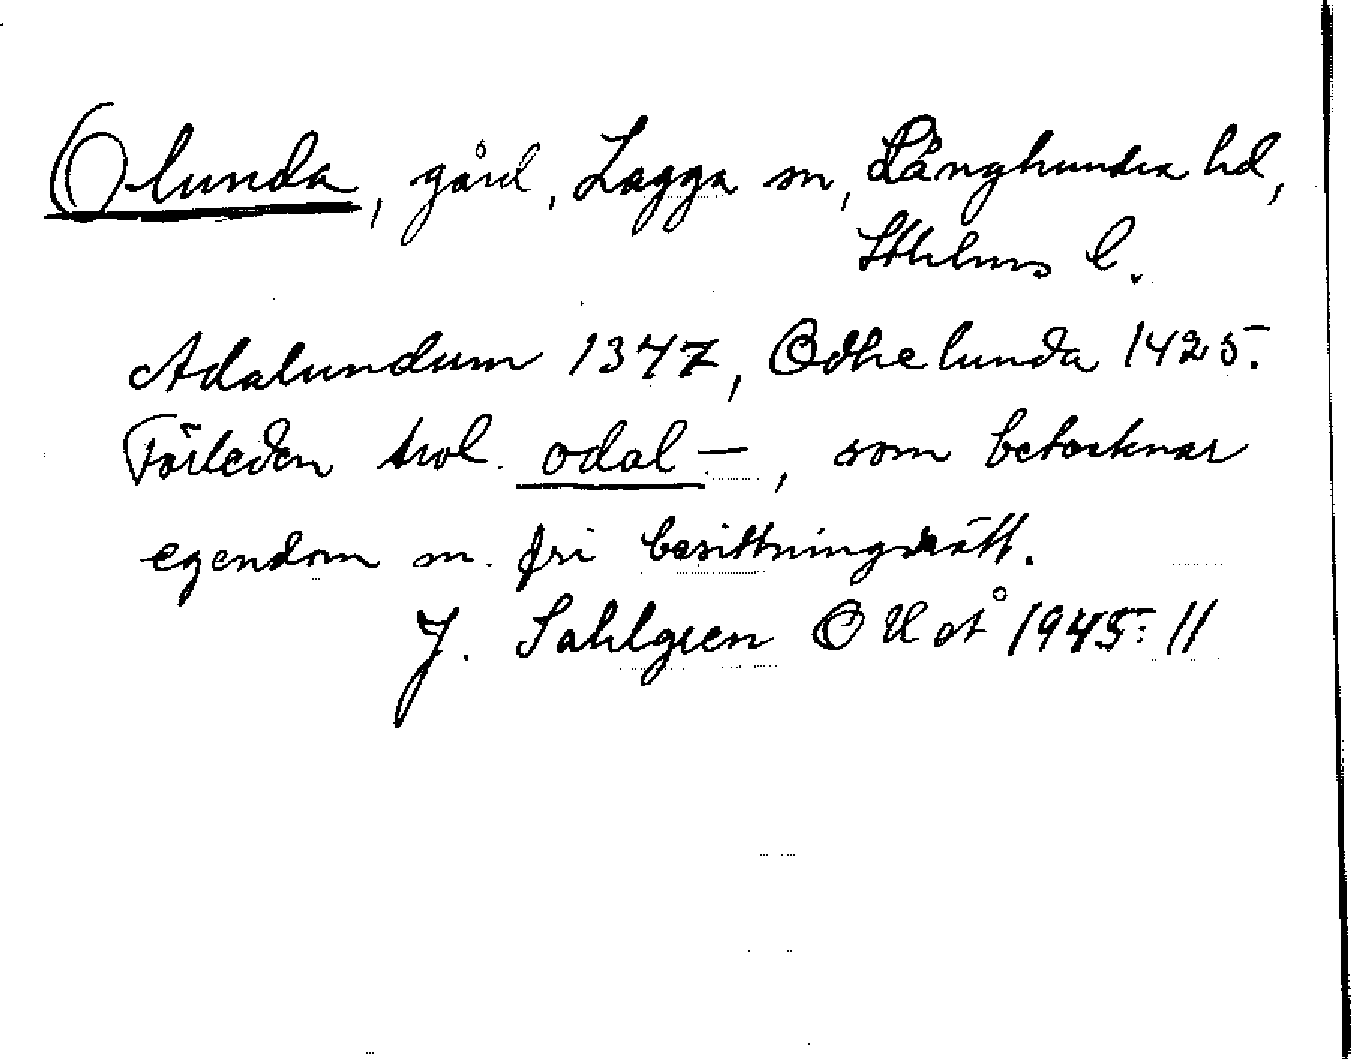 Olunda, gård, Lagga sn, Långhundra hd,
Sthlms l.
Adalundum 1347, Odhelunda 1425.
Förleden trol. odal-, som betecknar
egendom m. fri besittningsrätt.
J. Sahlgren OUoÅ 1945: 11